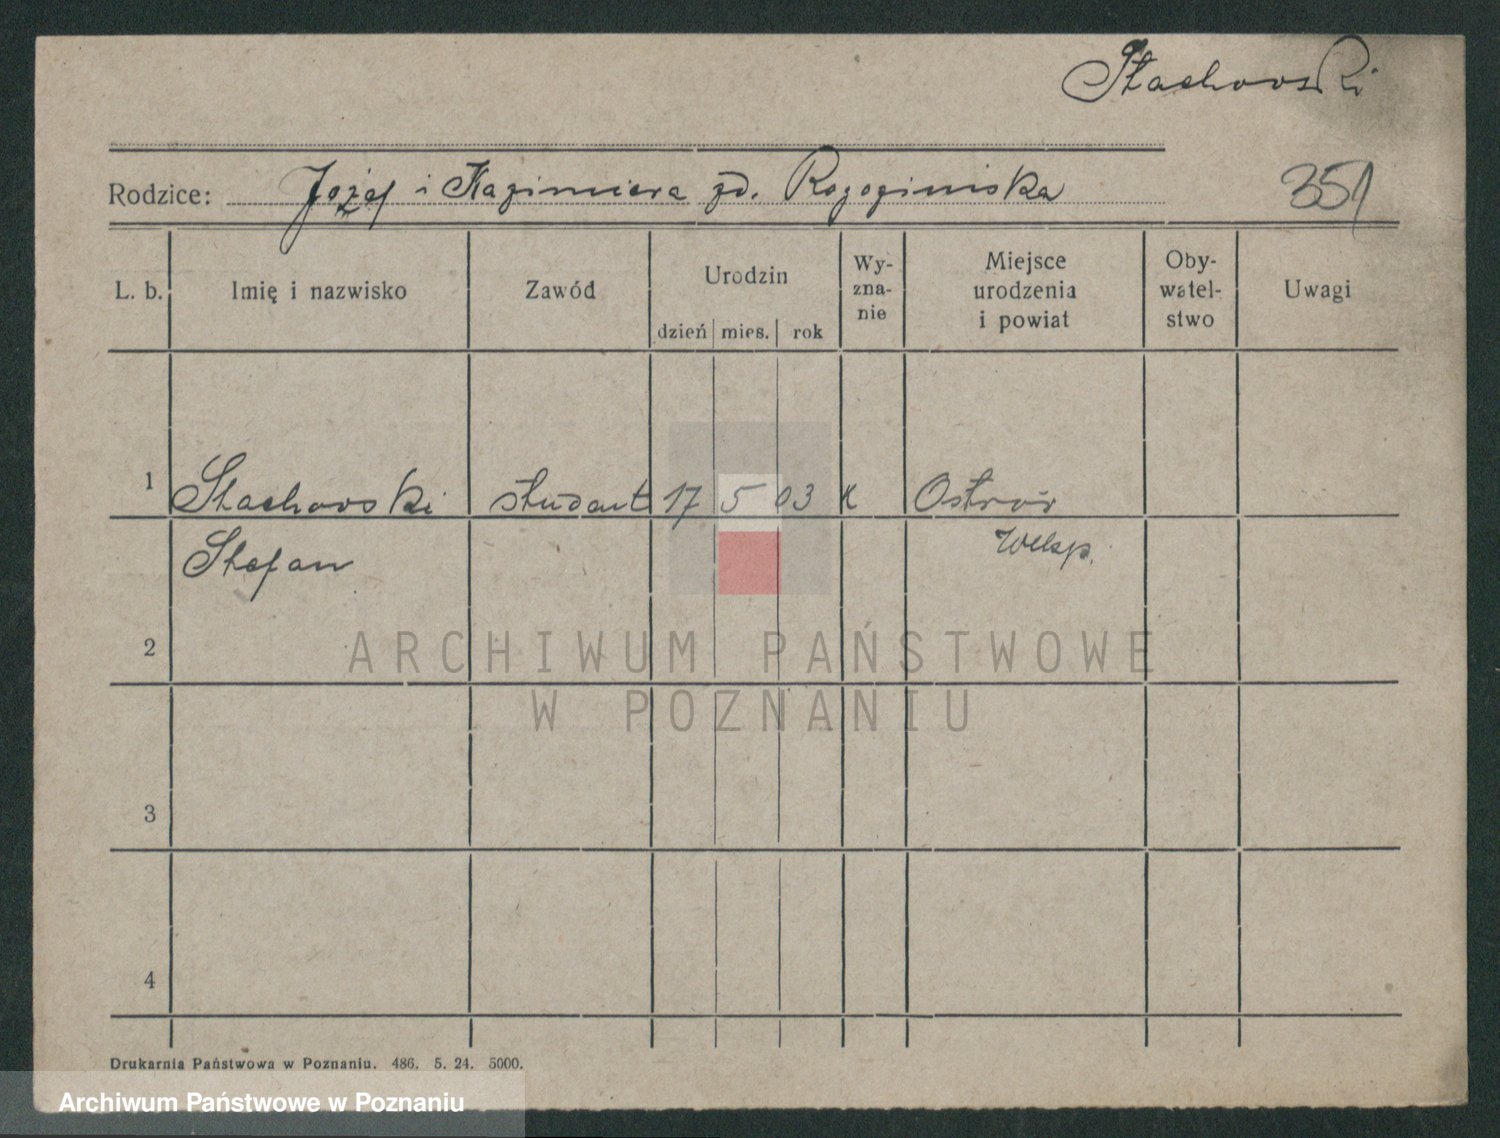 Stachowski
Rodzice: Józef i Kazimiera zd. Rogozinska
351
L. b. Imię i nazwisko Zawód Urodzin dzień mies. rok Wy-zna-nie Miejsce urodzenia i powiat Oby-watel-stwo Uwagi
1 Stachowski student 17 5 03 k Ostrów
Stefan Wlkp.
2
ARCHIWUM PAŃSTWOWE
W POZNANIU
3
4
Drukarnia Państwowa w Poznaniu. 486. 5. 24. 5000.
Archiwum Państwowe w Poznaniu